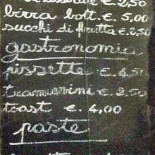 € 2.50
birra bott. € 5,00
succhi di frutta € 2,50
gastronomia
pissette € 4.50
tramezzini € 2.50
toast € 4,00
paste